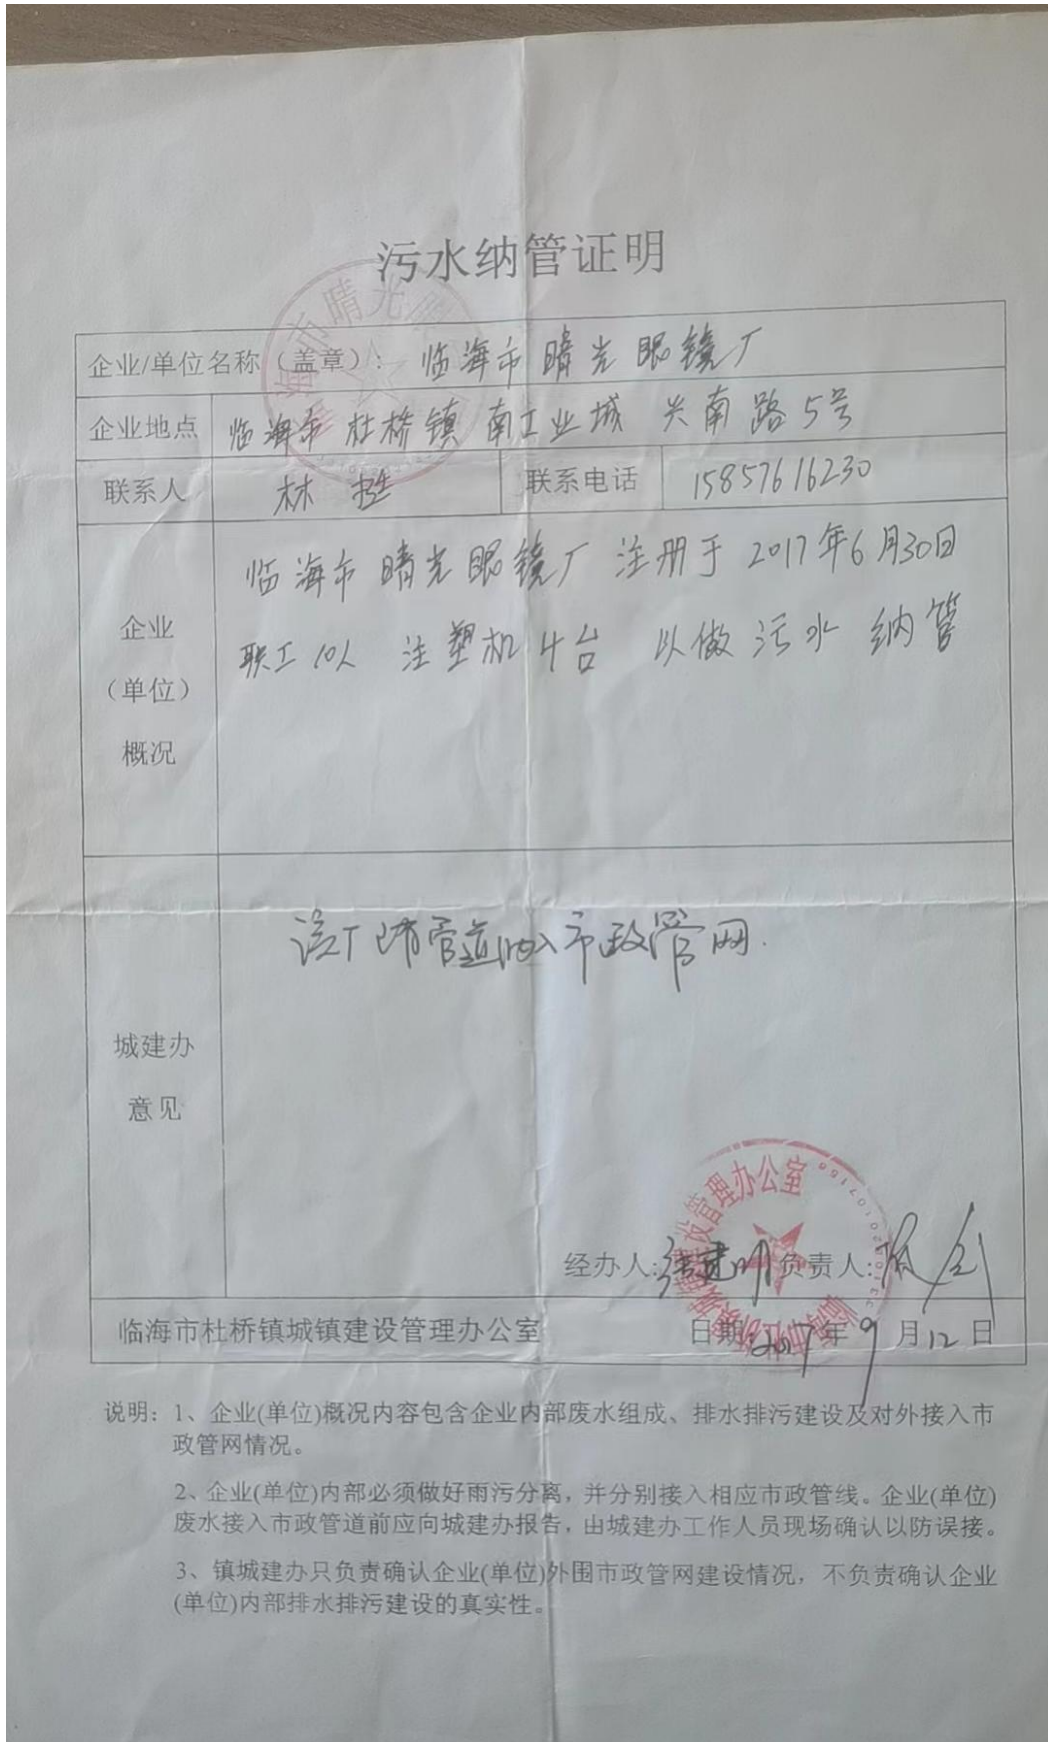 污水纳管证明
企业/单位名称（盖章）： 临海市晴光眼镜厂
企业地点 临海市杜桥镇南工业城 兴南路5号
联系人 林挺 联系电话 15857616230
临海市晴光眼镜厂注册于2017年6月30日
职工10人 注塑机4台 以做污水纳管
企业
（单位）
概况
该厂 管道纳入市政管网.
城建办
意见
经办人: 建明 负责人:
临海市杜桥镇城镇建设管理办公室 日期:2017年9月12日
说明：1、企业(单位)概况内容包含企业内部废水组成、排水排污建设及对外接入市
政管网情况。
2、企业(单位)内部必须做好雨污分离，并分别接入相应市政管线。企业(单位)
废水接入市政管道前应向城建办报告，由城建办工作人员现场确认以防误接。
3、镇城建办只负责确认企业(单位)外围市政管网建设情况，不负责确认企业
(单位)内部排水排污建设的真实性。